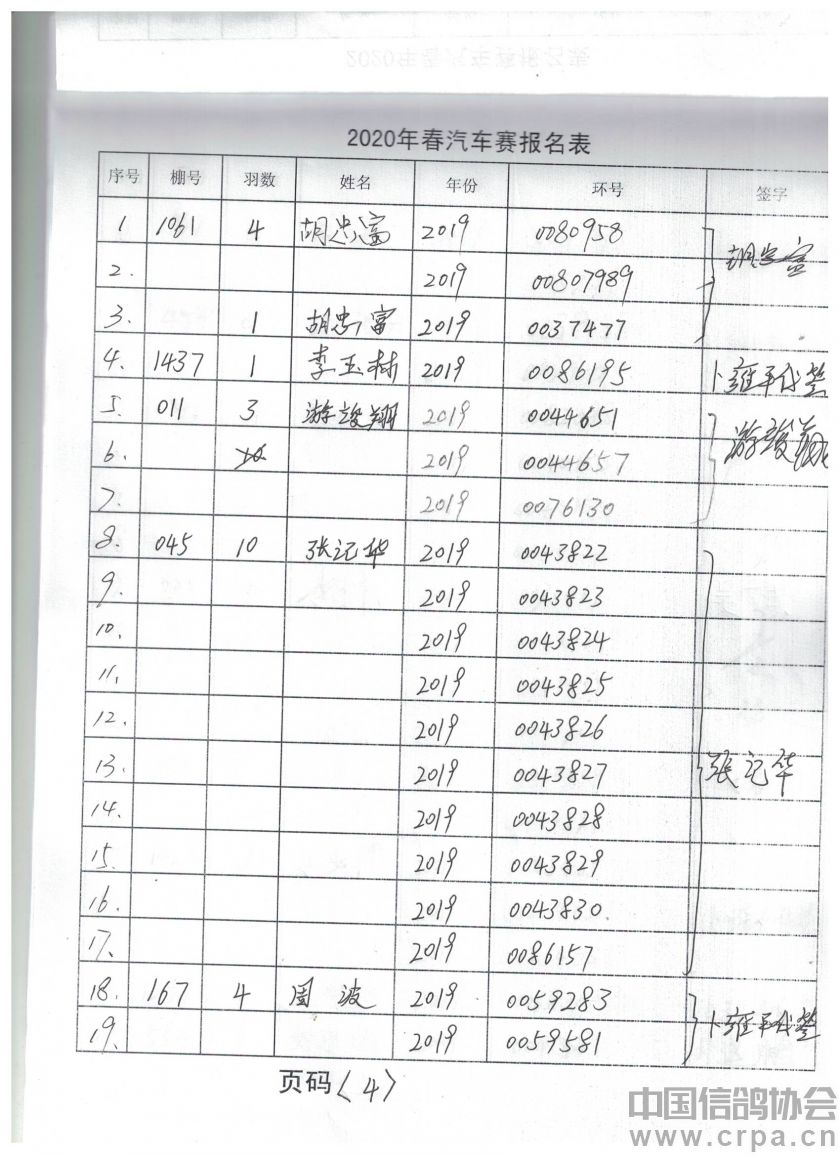 2020年春汽车赛报名表
序号 棚号 羽数 姓名 年份 环号 签字
1 1061 4 胡忠富 2019 0080958 胡忠富
2. 2019 00807989
3. 1 胡忠富 2019 0037477
4. 1437 1 李玉林 2019 0086195 卜雍平代签
5. 011 3 游竣翔 2019 0044651 游竣翔
6. 2019 0044657
7. 2019 0076130
8. 045 10 张记华 2019 0043822
9. 2019 0043823
10. 2019 0043824
11. 2019 0043825
12. 2019 0043826
13. 2019 0043827 张记华
14. 2019 0043828
15. 2019 0043829
16. 2019 0043830.
17. 2019 0086157
18. 167 4 周波 2019 0059283 卜雍平代签
19. 2019 0059581
页码〈4〉
中国信鸽协会
www.crpa.cn